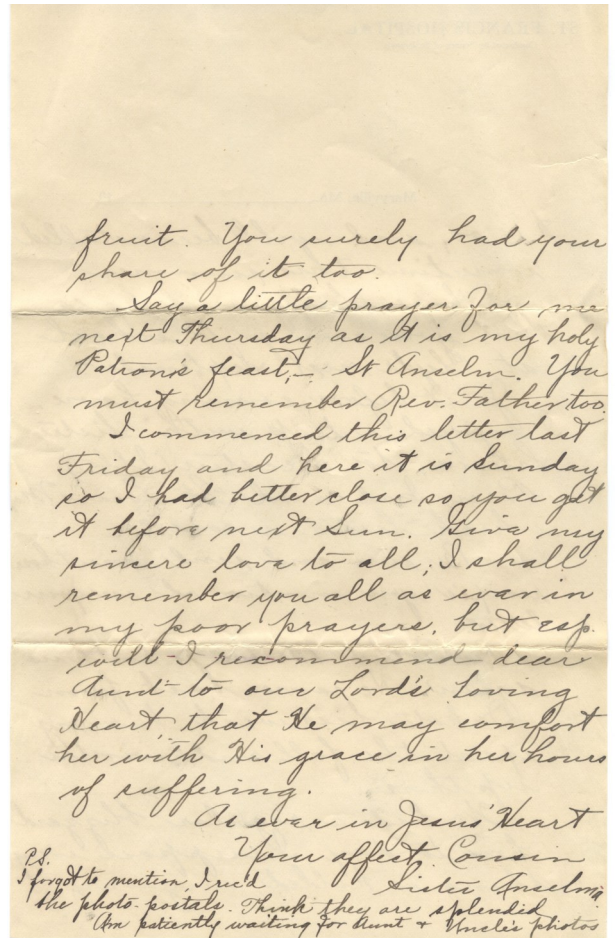 fruit. You surely had your
share of it too.
Say a little prayer for me
next Thursday as it is my holy
Patron's feast,– St Anselm. You
must remember Rev. Father too.
I commenced this letter last
Friday and here it is Sunday
so I had better close so you get
it before next Sun. Give my
sincere love to all; I shall
remember you all as ever in
my poor prayers, but esp.
will I recommend dear
Aunt to our Lord's Loving
Heart, that He may comfort
her with His grace in her hours
of suffering.
As ever in Jesus' Heart
Your affect. Cousin
Sister Anselma
P.S.
I forgot to mention, I rec'd
the photo-postals. Think they are splendid
Am patiently waiting for Aunt + Uncle's photos